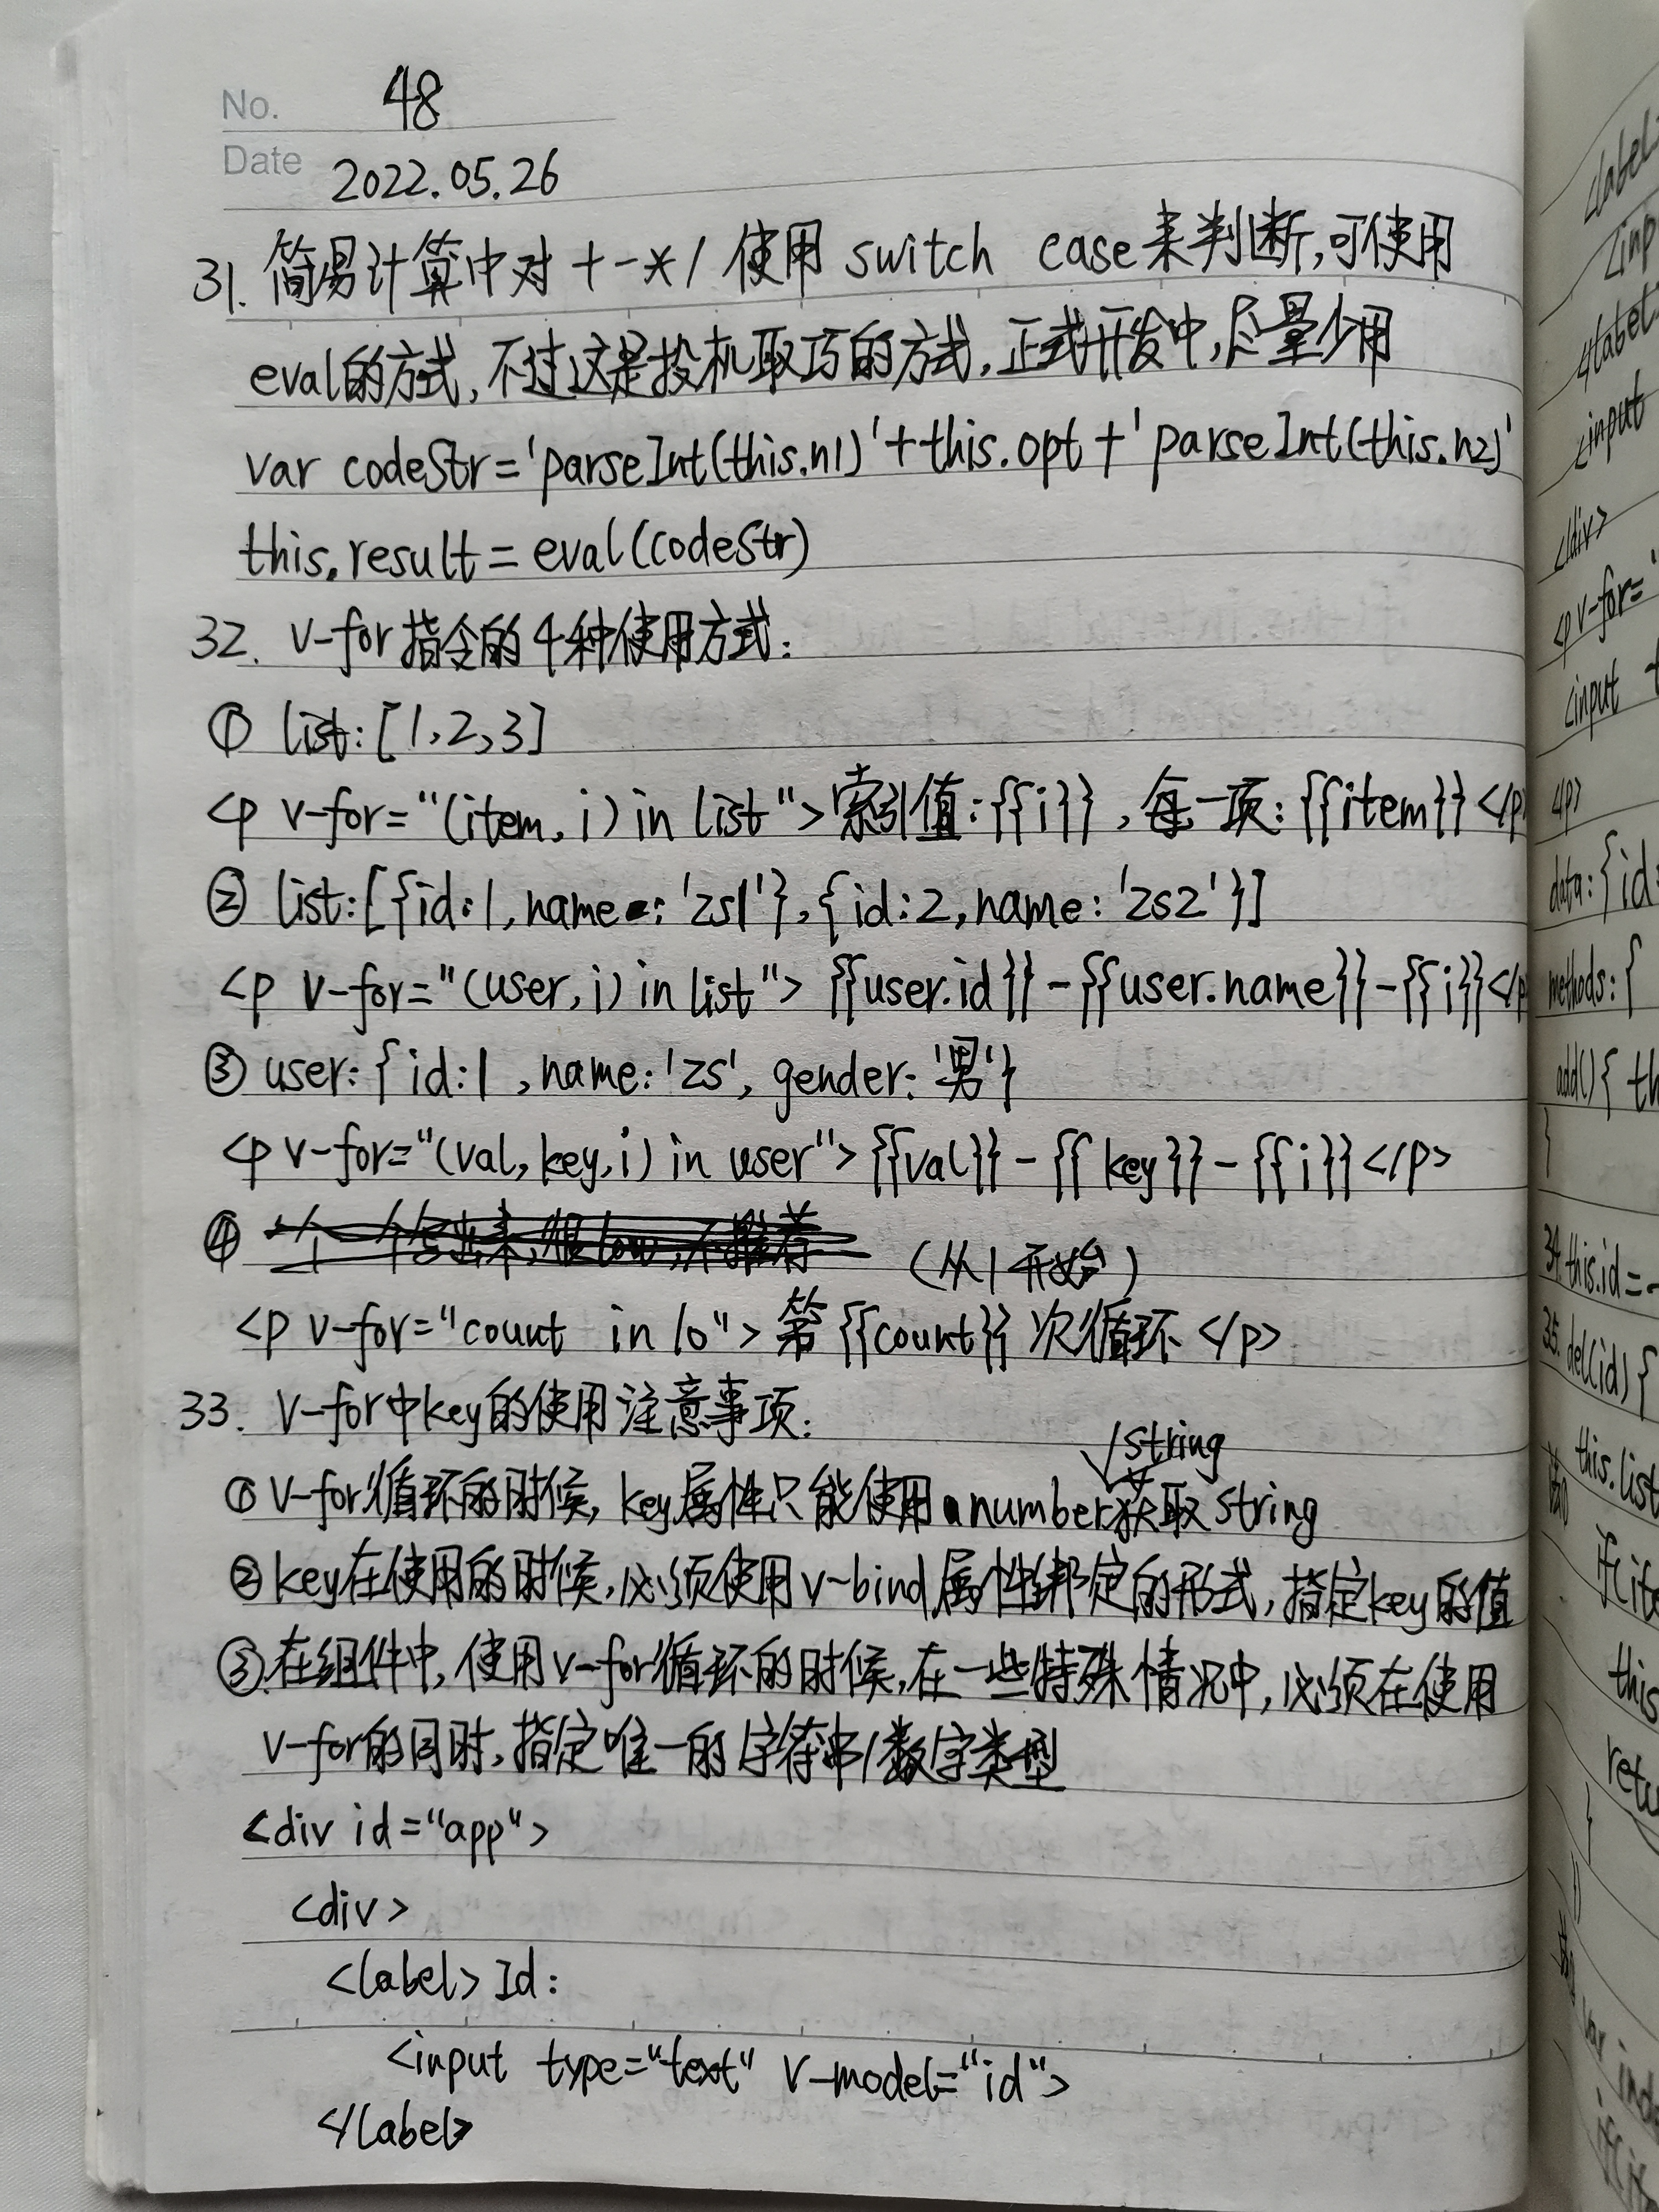 No. 48
Date 2022.05.26
31. 简易计算中对 + - * / 使用 switch case来判断,可使用
eval的方式,不过这是投机取巧的方式,正式开发中,尽量少用
var codeStr='parseInt(this.n1)'+this.opt+'parseInt(this.n2)'
this.result=eval(codeStr)
32. v-for指令的4种使用方式:
① list:[1,2,3]
<p v-for="(item,i) in list">索引值:{{i}},每一项:{{item}}</p
② list:[{id:1,name:'zs1'},{id:2,name:'zs2'}]
<p v-for="(user,i) in list">{{user.id}}-{{user.name}}-{{i}}</p
③ user:{id:1,name:'zs',gender:'男'}
<p v-for="(val,key,i) in user">{{val}}-{{key}}-{{i}}</p>
④ (从1开始)
<p v-for="count in 10">第{{count}}次循环</p>
33. v-for中key的使用注意事项:
√string
① v-for循环的时候,key属性只能使用number获取string
② key在使用的时候,必须使用v-bind属性绑定的形式,指定key的值
③ 在组件中,使用v-for循环的时候,在一些特殊情况中,必须在使用
v-for的同时,指定唯一的字符串/数字类型
<div id="app">
<div>
<label>Id:
<input type="text" v-model="id">
</label>
<label>
<input
</div>
<p v-for="
<input
</p>
data:{id:
methods:{
add(){ th
}
34.this.id=
35.del(id){
this.list
if(ite
this
retu
}